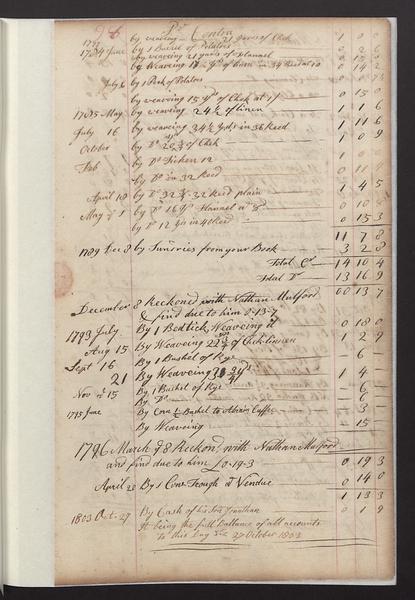 Pr Contra
by weaveing 21 yards of Chek 1 0 0
1784 June by 1 Bushel of Potatoes 0 2 6
by weaveing 21 yards of flannel
by Weaveing 17 yds of Linen in 34 Reed at 10 0 14
July 6 by 1 Peck of Potatoes
by weaveing 15 yds of Chek at 1/ 0 15 0
1785 May by weaveing 24 1/2 of linen 1 1 6
July 16 by weaveing 34 1/2 yds in 36 Reed 1 11 6
October by Do of Chek 1 0 9
Feb by Do 12
by Do in 32 Reed 0 11
April 18 by Do 32 Reed plain 1 4 5
May by Do 16 yds Flannel 0 10
by Do 12 yds in 40 Reed 0 15 3
11 7 8
1789 Dec 8 by Sunsries from your Book 3 2 8
Total Cr 14 10 4
Total Dr 13 16 9
December 8 Reckoned with Nathan Mulford 00 13 7
& find due to him 0-13-7
1793 July By 1 Bedtick Weaveing it 0 18 0
Aug 15 By Weaveing 22 1/2 of Cheklinnen 1 2 9
Sept 16 By 1 Bushel of Rye 6
21 By Weaveing 1 4
Nov 15 By 1 Bushel of Rye 6
By Do 6
1795 June By Corn 1/2 Bushel to 3
By Weaveing 15
1796 March 8 Reckond with Nathan Mulford
and find due to him £0-19-3 0 19 3
April 28 By 1 Cow Trough at Vendue 0 14 0
1 13 3
1803 Oct 27 By Cash of his Son Jonathan 0 1 9
It being the full Ballance of all accounts
to this Day 27 October 1803